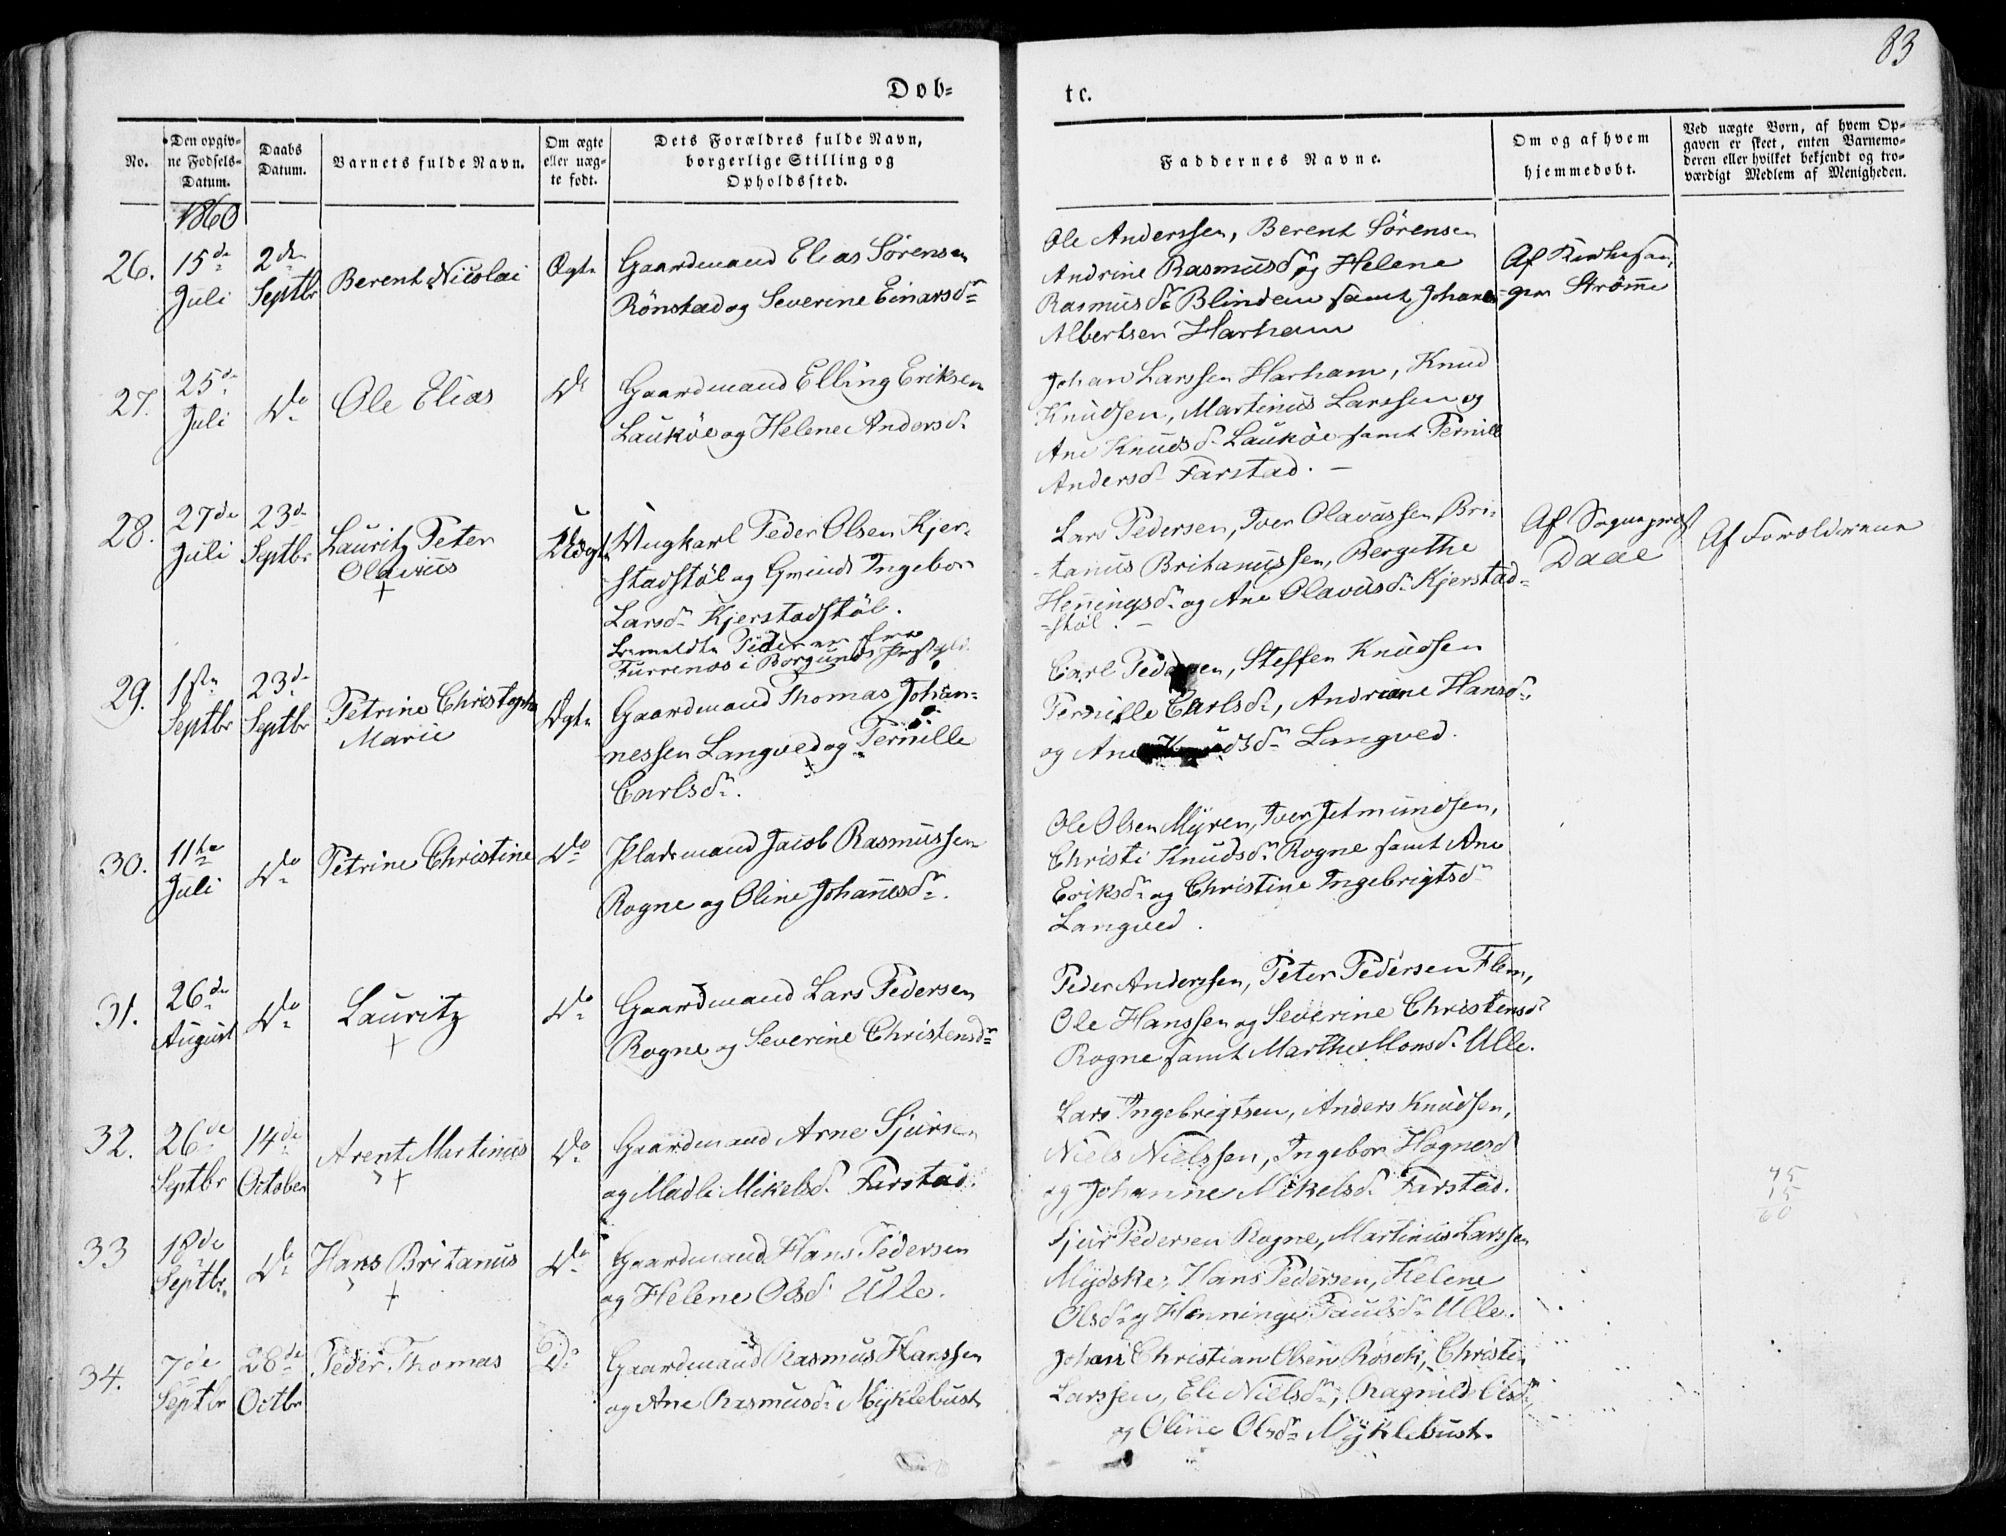 83
Døb-
te.
No.
Den opgiv-
ne Fødsels-
Datum.
Daabs
Datum.
Barnets fulde Navn.
Om ægte
eller uæg-
te født.
Dets Forældres fulde Navn,
borgerlige Stilling og
Opholdssted.
Faddernes Navne.
Om og af hvem
hjemmedøbt.
Ved uægte Børn, af hvem Op-
gaven er skeet, enten Barnemo-
deren eller hvilket bekjendt og tro-
værdigt Medlem af Menigheden.
1860
26.
15de
Juli
2den
Septbr
Berent Nicolai
Ægte
Gaardmand Elias Sørensen
Rönstad og Severine Einarsdr
Ole Anderssen, Berent Sørensen
Andrine Rasmusdr og Helene
Rasmusdr Blindem samt Johan
Albertsen Harham
Af Kirkesan-
ger Strømme
27.
25de
Juli
Do
Ole Elias
Do
Gaardmand Elling Eriksen
Laukøe og Helene Andersdr
Johan Larssen Harham, Knud
Knudsen, Martinus Larssen og
Ane Knudsdr Laukøe samt Pernille
Andersdr Farstad. —
28.
27de
Juli
23de
Septbr
Lauritz Peter
Olavus
+
Uægte
Ungkarl Peder Olsen Kjer-
stadstöl og Ingebor
Larsdr Kjerstadstöl.
Peder er fra
Furrenes i Borgunds
Lars Pedersen, Iver Olavussen, Bri-
tanus Britanussen, Bergithe
Henningsdr og Ane Olavusdr Kjerstad-
stöl. —
Af Sogneprest
Daae
Af Forældrene
29.
1ste
Septbr
23de
Septbr
Petrine Christophe
Marie
Ægte
Gaardmand Thomas Johan-
nessen Langved og Pernille
Carlsdr.
Carl Pedersen, Steffen Knudsen
Pernille Carlsdr, Andriane Hansdr,
og Ane Knudsdr Langved.
30.
11te
Juli
Do
Petrine Christine
Do
Pladsmand Jacob Rasmussen
Rogne og Oline Johannesdr.
Ole Olsen Myren, Iver Jetmundsen,
Christi Knudsdr Rogne samt Ane
Eriksdr og Christine Ingebrigtsdr
Langved.
31.
26de
August
Do
Lauritz
+
Do
Gaardmand Lars Pedersen
Rogne og Severine Christensdr
Peder Anderssen, Peter Pedersen Flem,
Ole Hanssen og Severine Christensdr
Rogne samt Marthe Monsdr Ulle.
32.
26de
Septbr
14de
October
Arent Martinus
+
Do
Gaardmand Arne Sjursen
og Madli Mikelsdr Farstad.
Lars Ingebrigtsen, Anders Knudsen,
Niels Nielssen, Ingebor Hognesdr
og Johanne Mikelsdr Farstad.
75
15
60
33
18de
Septbr.
Do
Hans Britanus
+
Do
Gaardmand Hans Pedersen
og Helene Olsdr Ulle.
Sjur Pedersen Rogne, Martinus Larssen
Mydske, Hans Pedersen, Helene
Olsdr og Henninge Paulsdr Ulle.
34.
7de
Septbr
28de
Octbr
Peder Thomas
Do
Gaardmand Rasmus Hanssen
og Ane Rasmusdr Myklebust
Johan Christian Olsen Røsok, Christen
Larssen, Eli Nielsdr, Ragnild Olsdr,
og Oline Olsdr Myklebust.